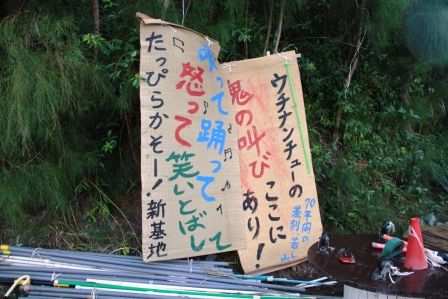 ウチナンチューの
鬼の叫び
ここに
あり!
70年間の
差別、苦
って踊って
怒って
笑いとばし
て
たっぴらかそー!新基地